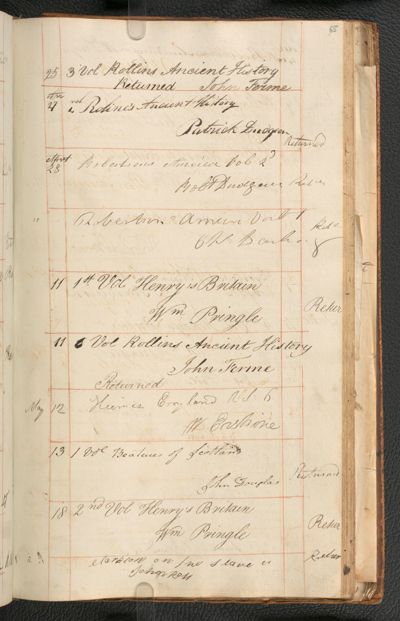 25 3 Vol Rollins Ancient History
Returned John Ferme
Vol Rolins Ancient History
Patrick Dudgeon
Returned
28 Robertsons America Vol 2d
Robt Dudgeon
" Robertsons Vol 1
11 1st Vol Henry's Britain
Wm Pringle
11 6 Vol Rollins Ancient History
John Ferme
Returned
May 12 Humes England Vol 6
W. Erskine
13 1 Vol Beauties of Scotland
John Douglas Returned
18 2nd Vol Henry's Britain
Wm Pringle
on